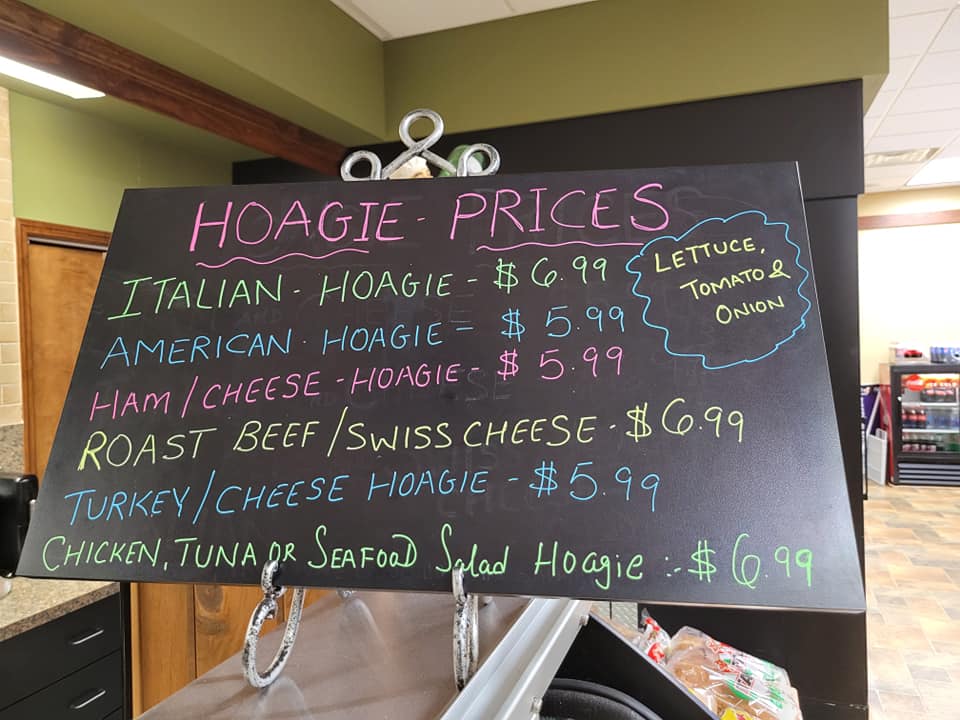 HOAGIE - PRICES
ITALIAN - HOAGIE - $ 6.99
AMERICAN. HOAGIE = $ 5.99
HAM/CHEESE - HOAGIE - $ 5.99
ROAST BEEF/SWISS CHEESE - $6.99
TURKEY/CHEESE HOAGIE - $5.99
CHICKEN, TUNA OR SEAFOOD Salad Hoagie :- $ 6.99
LETTUCE,
TOMATO &
ONION